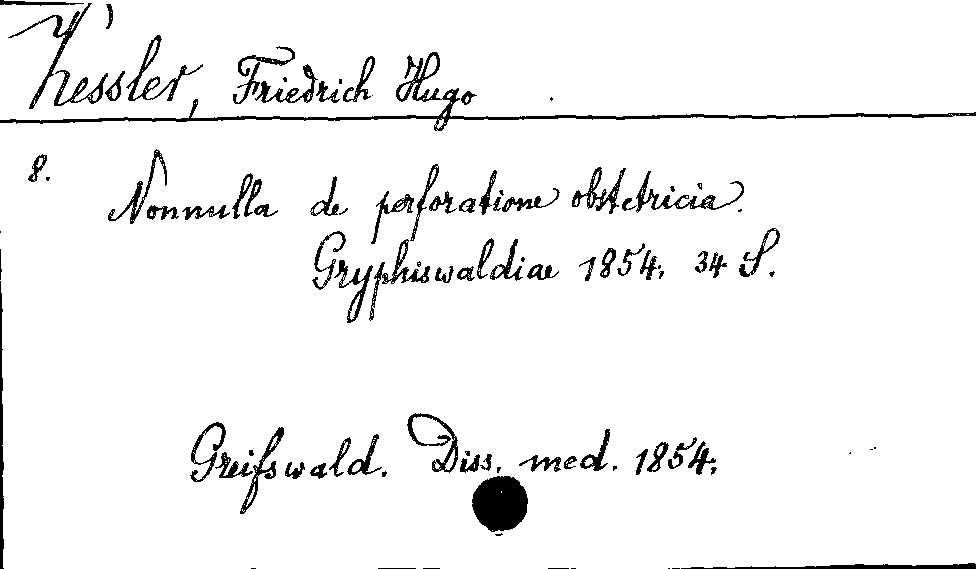 Kessler, Friedrich Hugo
8.
Nonnulla de perforatione obstetricia.
Gryphiswaldiae 1854, 34 S.
Greifswald. Diss. med. 1854,